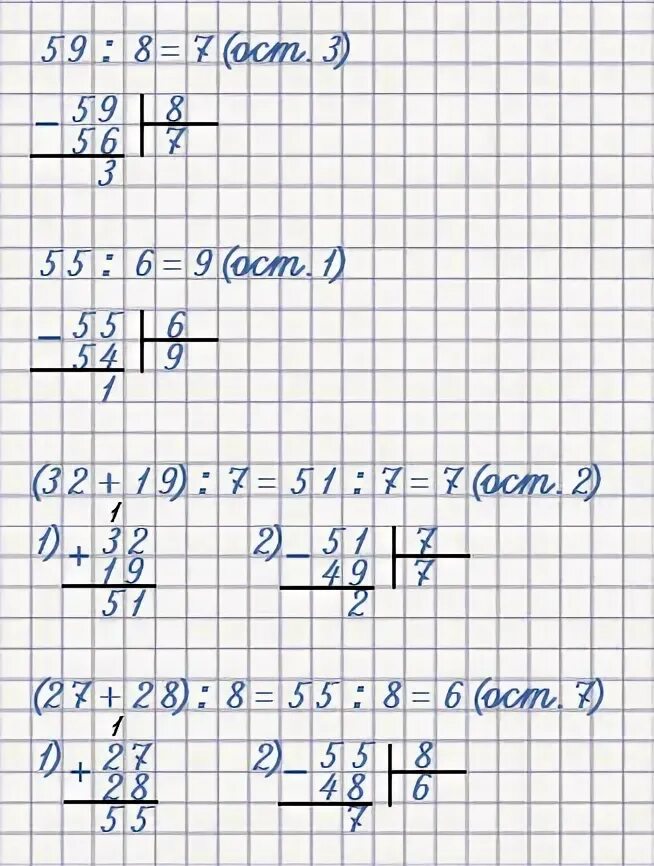 59 : 8 = 7 (ост. 3)
− 59 | 8
56 | 7
3
55 : 6 = 9 (ост. 1)
− 55 | 6
54 | 9
1
(32 + 19) : 7 = 51 : 7 = 7 (ост. 2)
1
1) + 32
19
51
2) − 51 | 7
49 | 7
2
(27 + 28) : 8 = 55 : 8 = 6 (ост. 7)
1
1) + 27
28
55
2) − 55 | 8
48 | 6
7